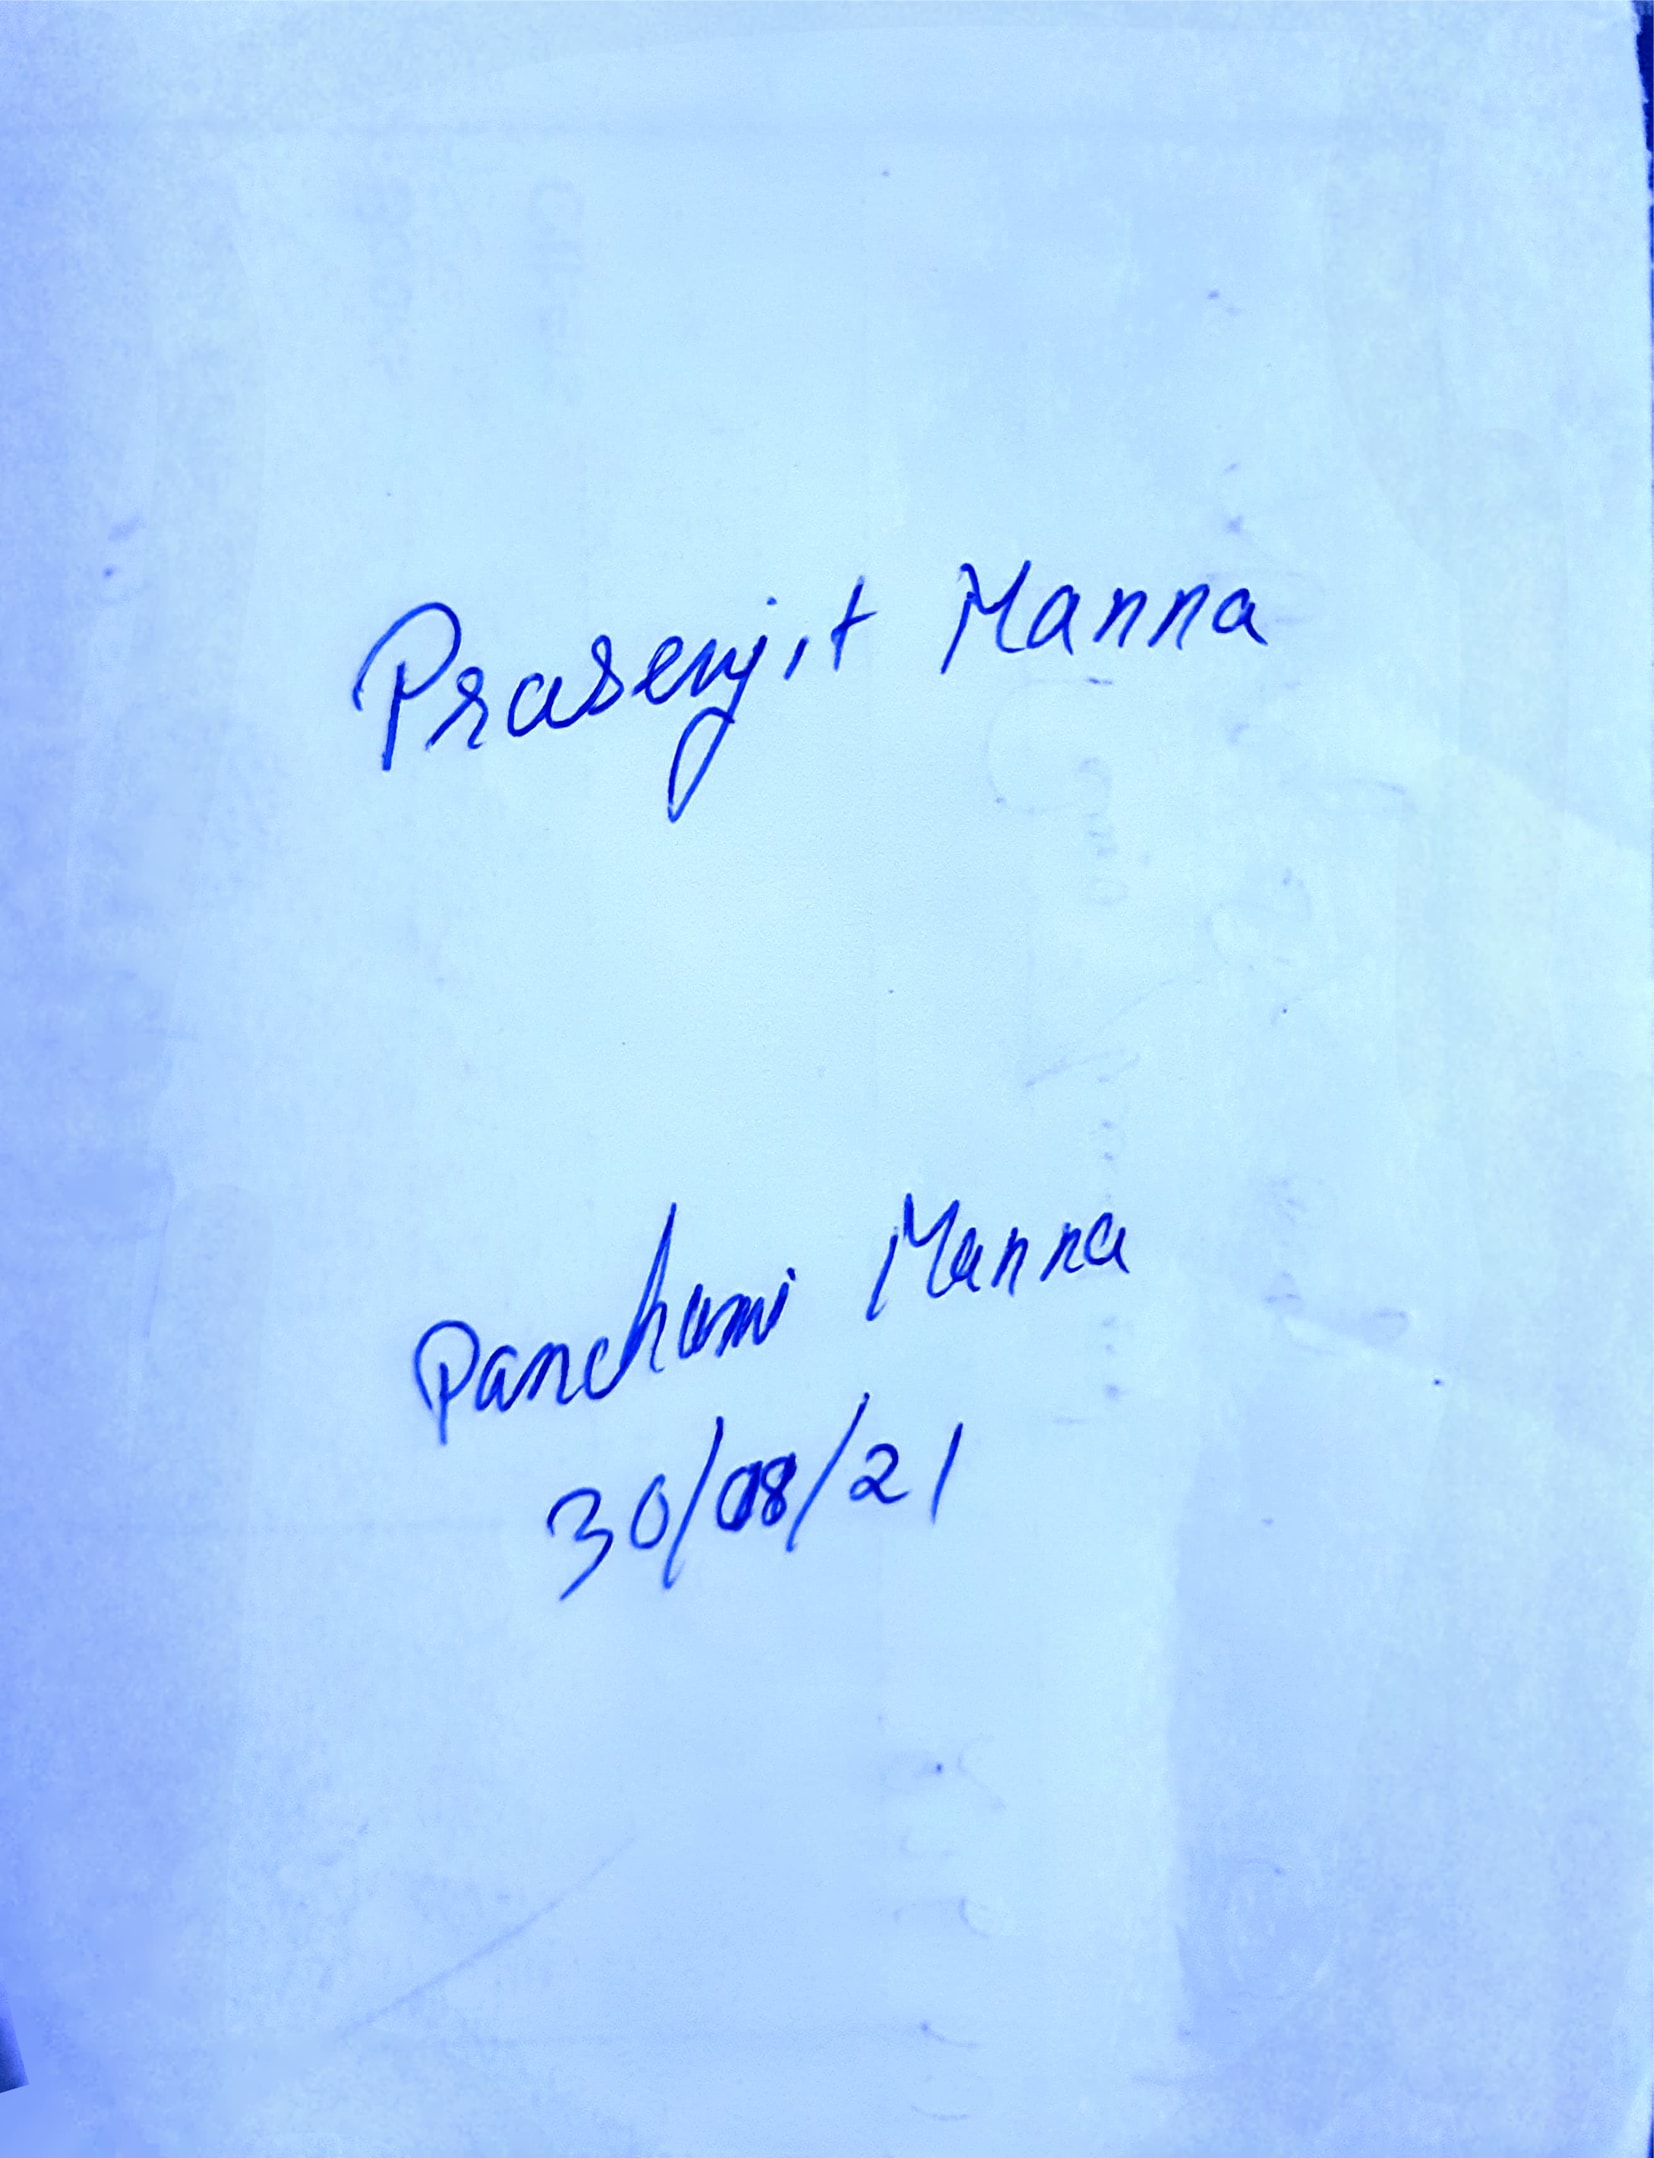 Prasenjit Manna
Panchami Manna
30/08/21